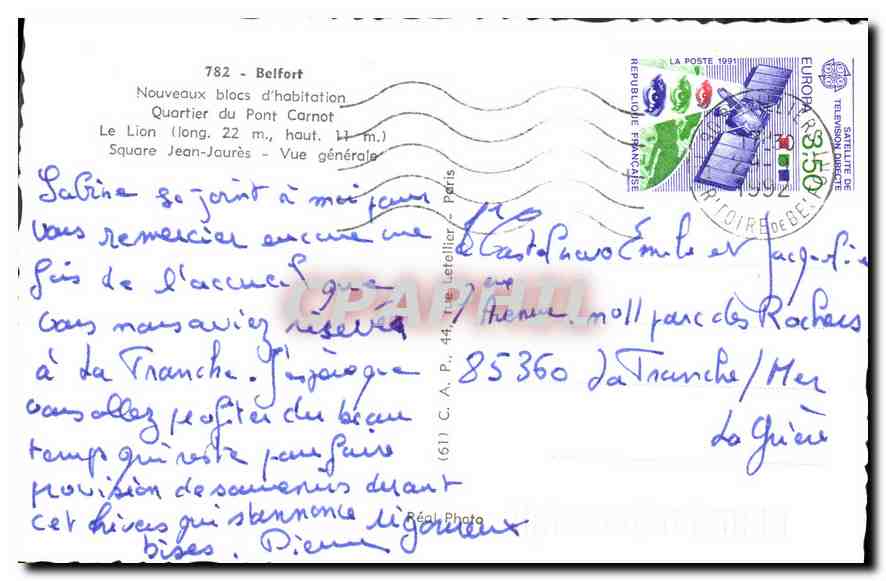 782 - Belfort
Nouveaux blocs d'habitation
Quartier du Pont Carnot
Le Lion (long. 22 m., haut. 11 m.)
Square Jean-Jaurès - Vue générale
Sabine se joint à moi pour
vous remercier encore une
fois de l'accueil que
vous nous aviez réservé
à La Tranche. J'espère que
vous allez profiter du beau
temps qui reste pour faire
provision de souvenirs durant
cet hiver qui s'annonce rigoureux
bises. Pierre
(61) C. A. P., 44, rue Letellier - Paris
Réal-Photo
LA POSTE 1991
REPUBLIQUE FRANÇAISE
EUROPA
SATELLITE DE
TELEVISION DIRECTE
3,50
1992
TOIRE DE BEL
de Castelnuovo Emile et Jacqueline
7 ème Avenue. no 11 parc des Rochers
85360 La Tranche/Mer
La Grière
CPAPHIL